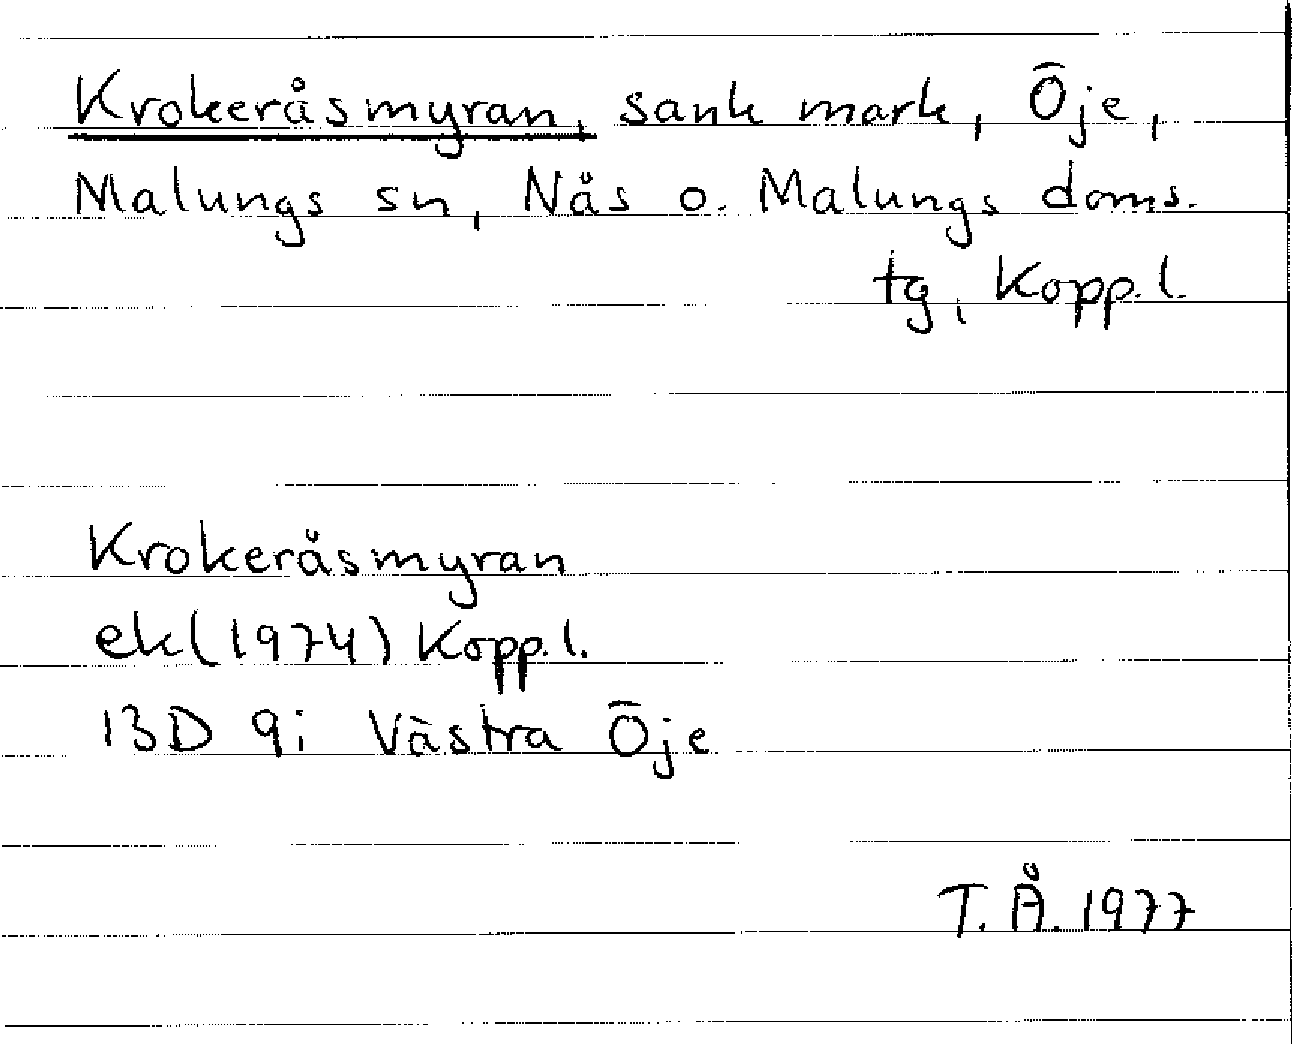 Krokeråsmyran, sank mark, Öje,
Malungs sn, Nås o. Malungs doms.
tg, Kopp.l.
Krokeråsmyran
ek(1974) Kopp.l.
13D 9i Västra Öje
T.Å. 1977